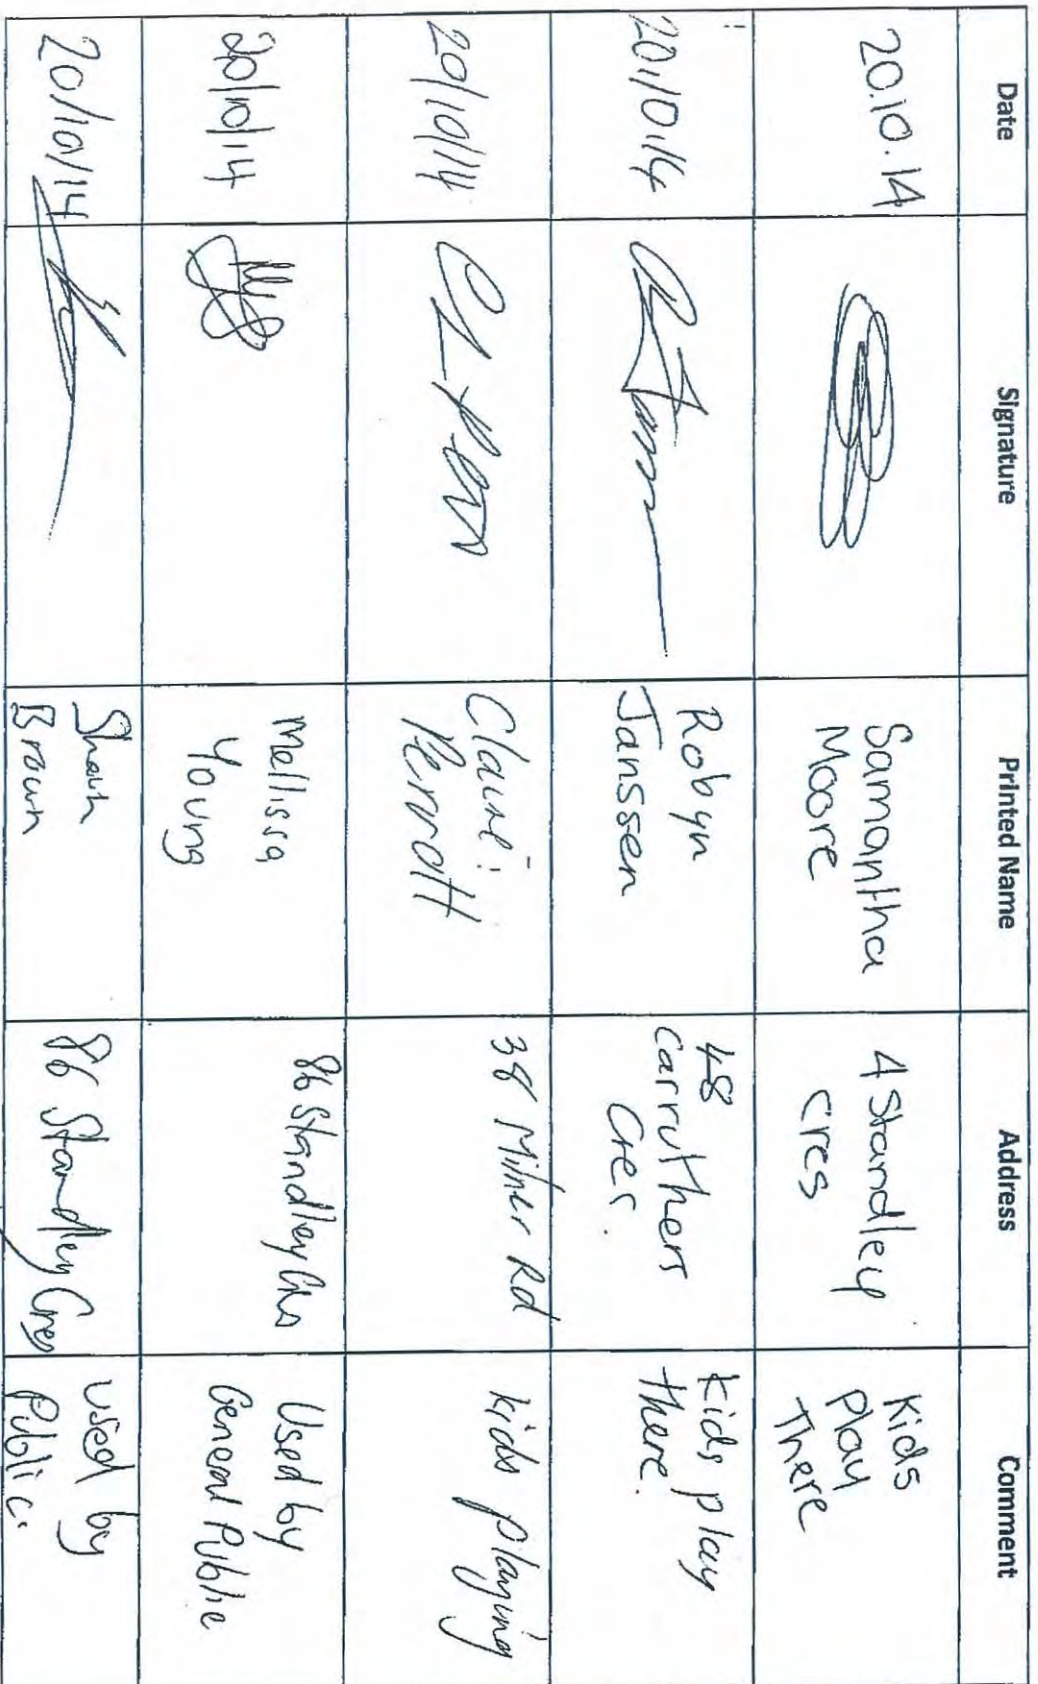 Date Signature Printed Name Address Comment
20.10.14 Samantha Moore 4 Standley Cres Kids Play There
20/10/14 Robyn Janssen 48 Carruthers Cres. Kids play there.
20/10/14 Perrott 38 Milner Rd kids playing
20/10/14 Mellissa Young 86 Standley Cres Used by General Public
20/10/14 Shaun Brown 86 Standley Cres used by Public.